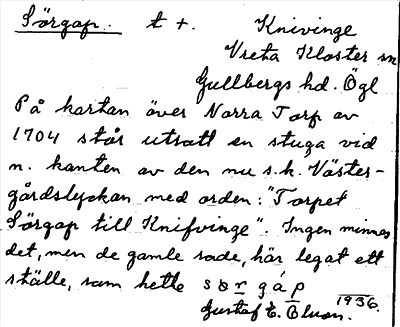 Sörgap. t +. Knivinge
Vreta Kloster sn
Gullbergs hd. Ögl
På kartan över Norra Torp av
1704 står utsatt en stuga vid
n. kanten av den nu s.k. Väster-
gårdslyckan med orden: "Torpet
Sörgap till Knifvinge". Ingen minnes
det, men de gamle sade, här legat ett
ställe, som hette sörgáp
1936.
Gustaf E. Olson.